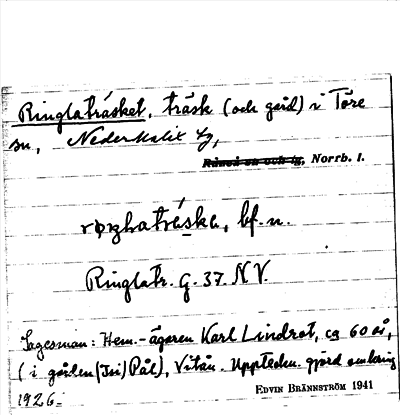 Ringlaträsket, träsk (och gård) i Töre
sn, Nederkalix tg,
Råneå sn och tg, Norrb. l.
bf. n.
Ringlatr. G. 37. N V.
Sagesman: Hem.-ägaren Karl Lindrot, ca 60 år,
(i gården (Jsi) Pål), Vitån. Uppteckn. gjord omkring
1926.
EDVIN BRÄNNSTRÖM 1941